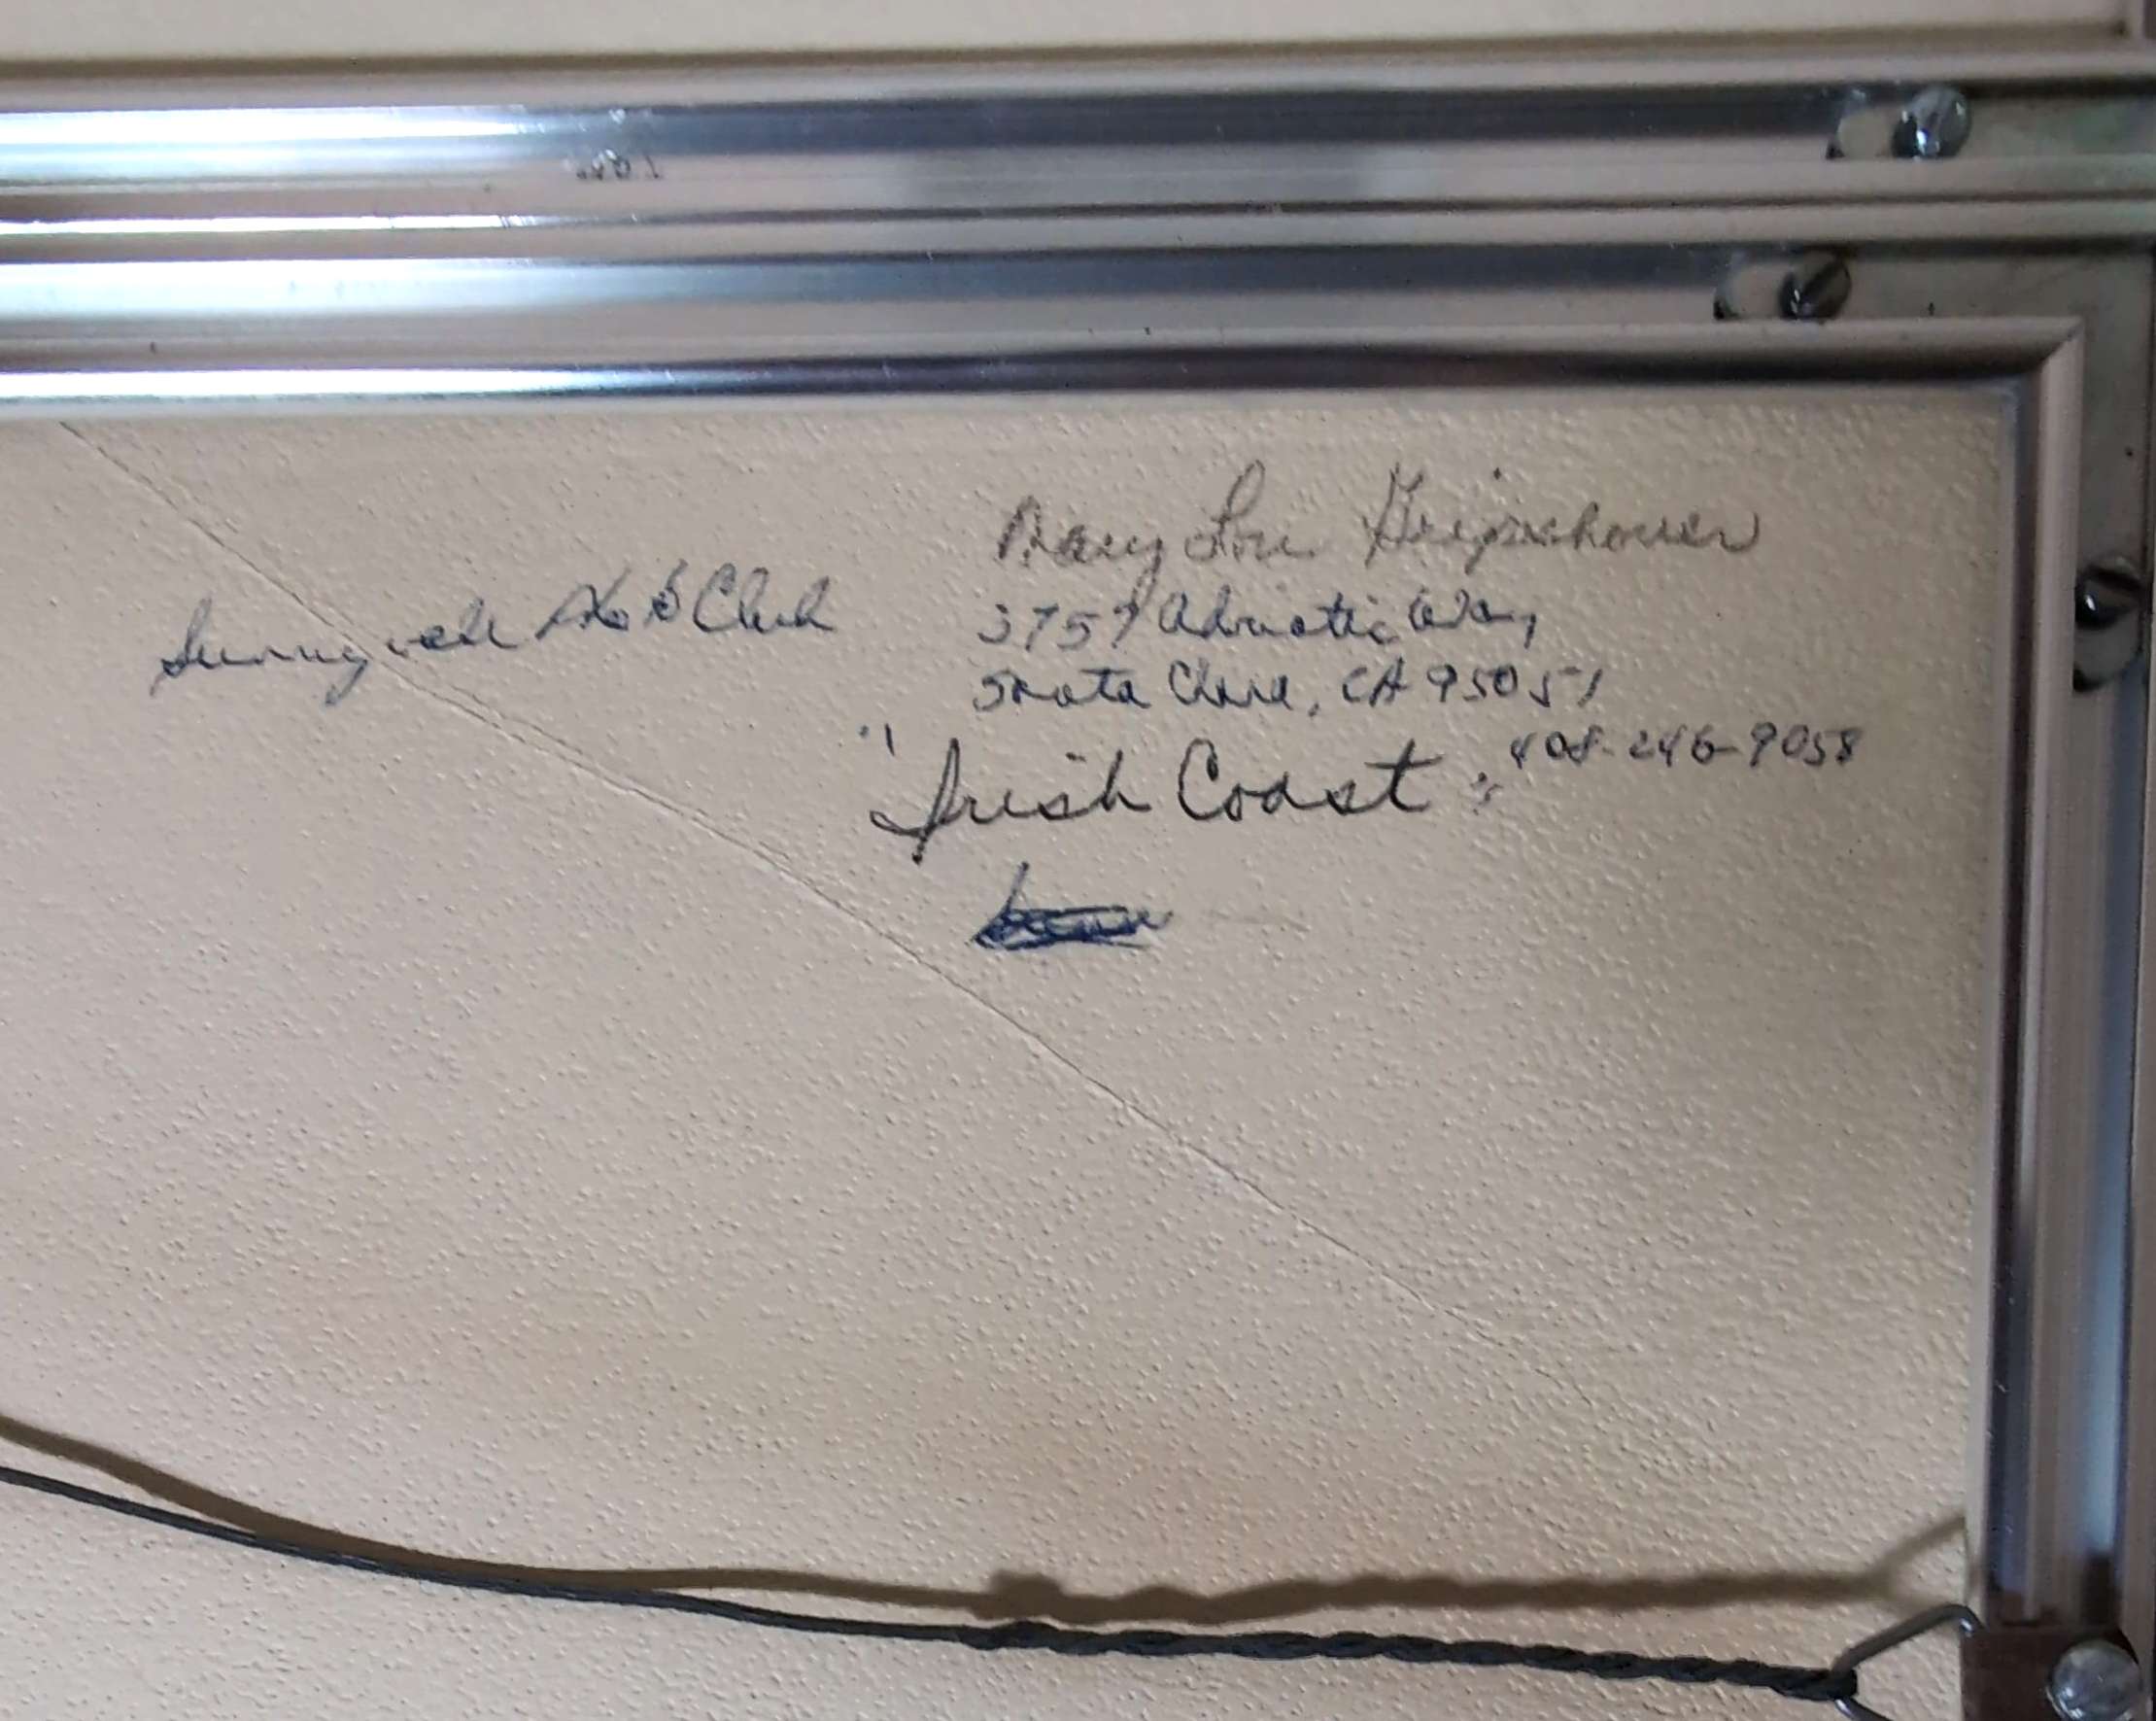 Mary Lou Gripschover
Sunnyvale Art Club
3757 Adriatic Way
Santa Clara, CA 95051
408-246-9058
"Irish Coast"